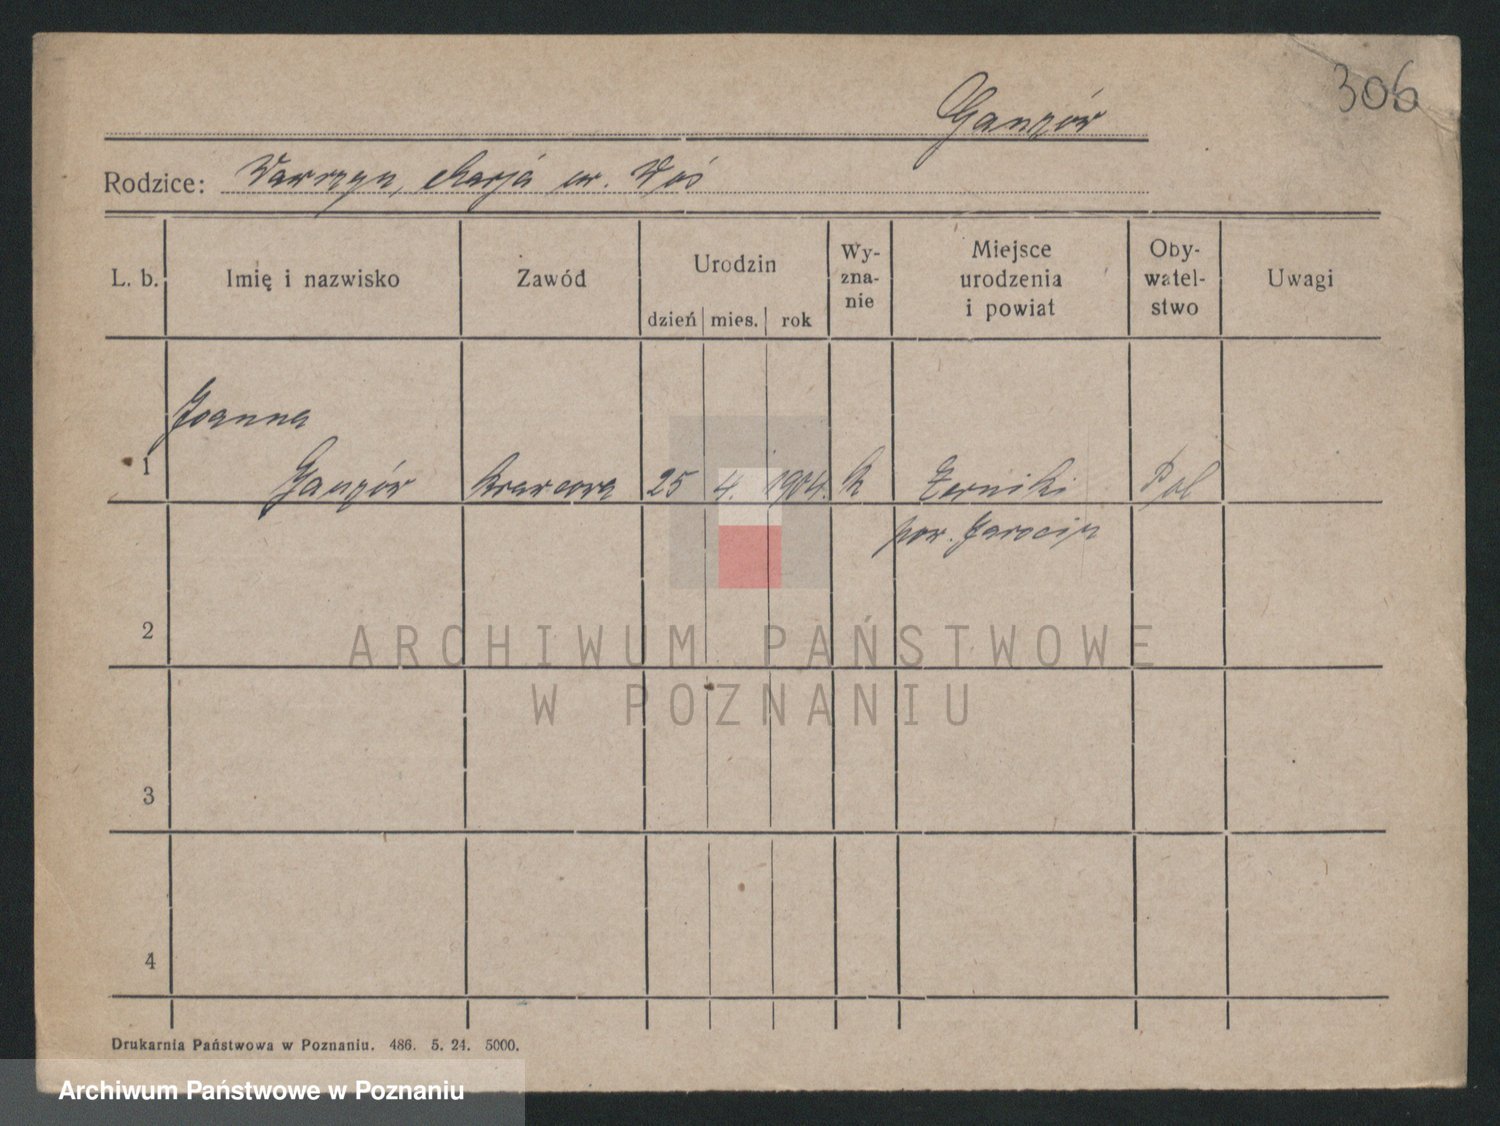 306
Ganzór
Rodzice: Wawrzyn, Marja ur. Woś
L. b.
Imię i nazwisko
Zawód
Urodzin
dzień mies. rok
Wy-
zna-
nie
Miejsce
urodzenia
i powiat
Oby-
watel-
stwo
Uwagi
Joanna
1 Ganzór krawcowa 25 4. 1904. k Żerniki Pol
pow. Jarocin
2
3
4
ARCHIWUM PAŃSTWOWE
W POZNANIU
Drukarnia Państwowa w Poznaniu. 486. 5. 24. 5000.
Archiwum Państwowe w Poznaniu